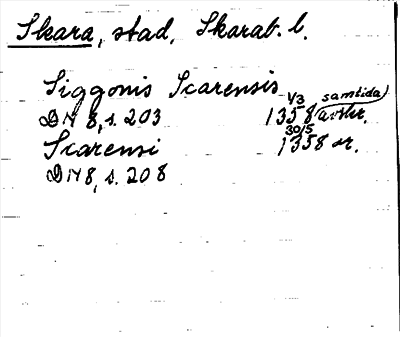 Skara, stad, Skarab. l.
Siggonis Scarensis
1/3 samtida)
DN 8, s. 203 1358 avskr.
30/5
Scarensi 1358 or.
DN 8, s. 208